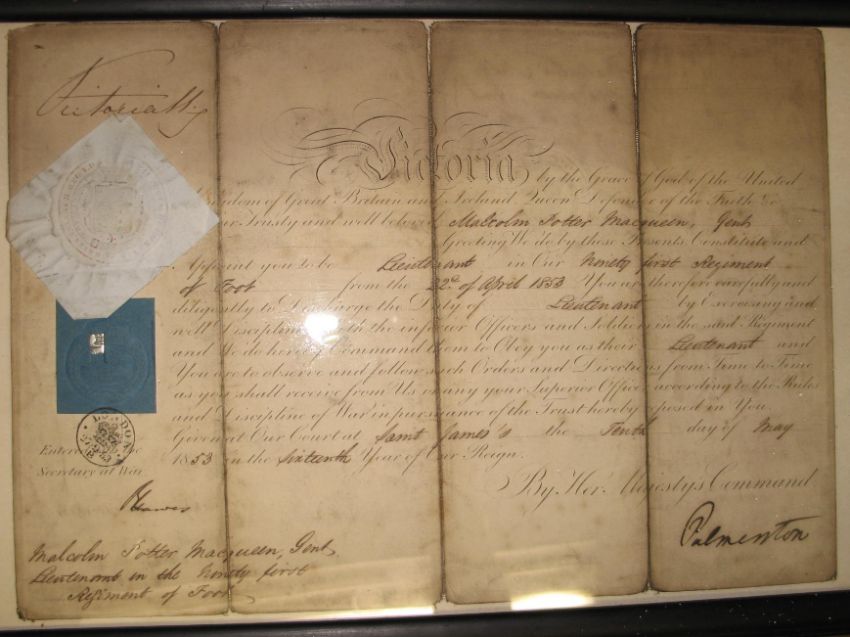 Victoria R
Victoria, by the Grace of God of the United
Kingdom of Great Britain and Ireland Queen Defender of the Faith &c
our Trusty and well beloved Malcolm Potter Macqueen, Gent
Greeting We do by these Presents Constitute and
Appoint you to be Lieutenant in Our Ninety first Regiment
of Foot from the 22d of April 1853 You are therefore carefully and
diligently to Discharge the Duty of Lieutenant by Exercising and
well Disciplining both the inferior Officers and Soldiers in the said Regiment
and We do hereby Command them to Obey you as their Lieutenant and
You are to observe and follow such Orders and Directions from Time to Time
as you shall receive from Us or any your Superior Officer according to the Rules
and Discipline of War in pursuance of the Trust hereby reposed in You
Given at Our Court at Saint James's the Tenth day of May
1853 in the Sixteenth Year of Our Reign.
By Her Majesty's Command
Palmerston
LONDON
Entered
Secretary at War
Malcolm Potter Macqueen, Gent,
Lieutenant in the Ninety first
Regiment of Foot